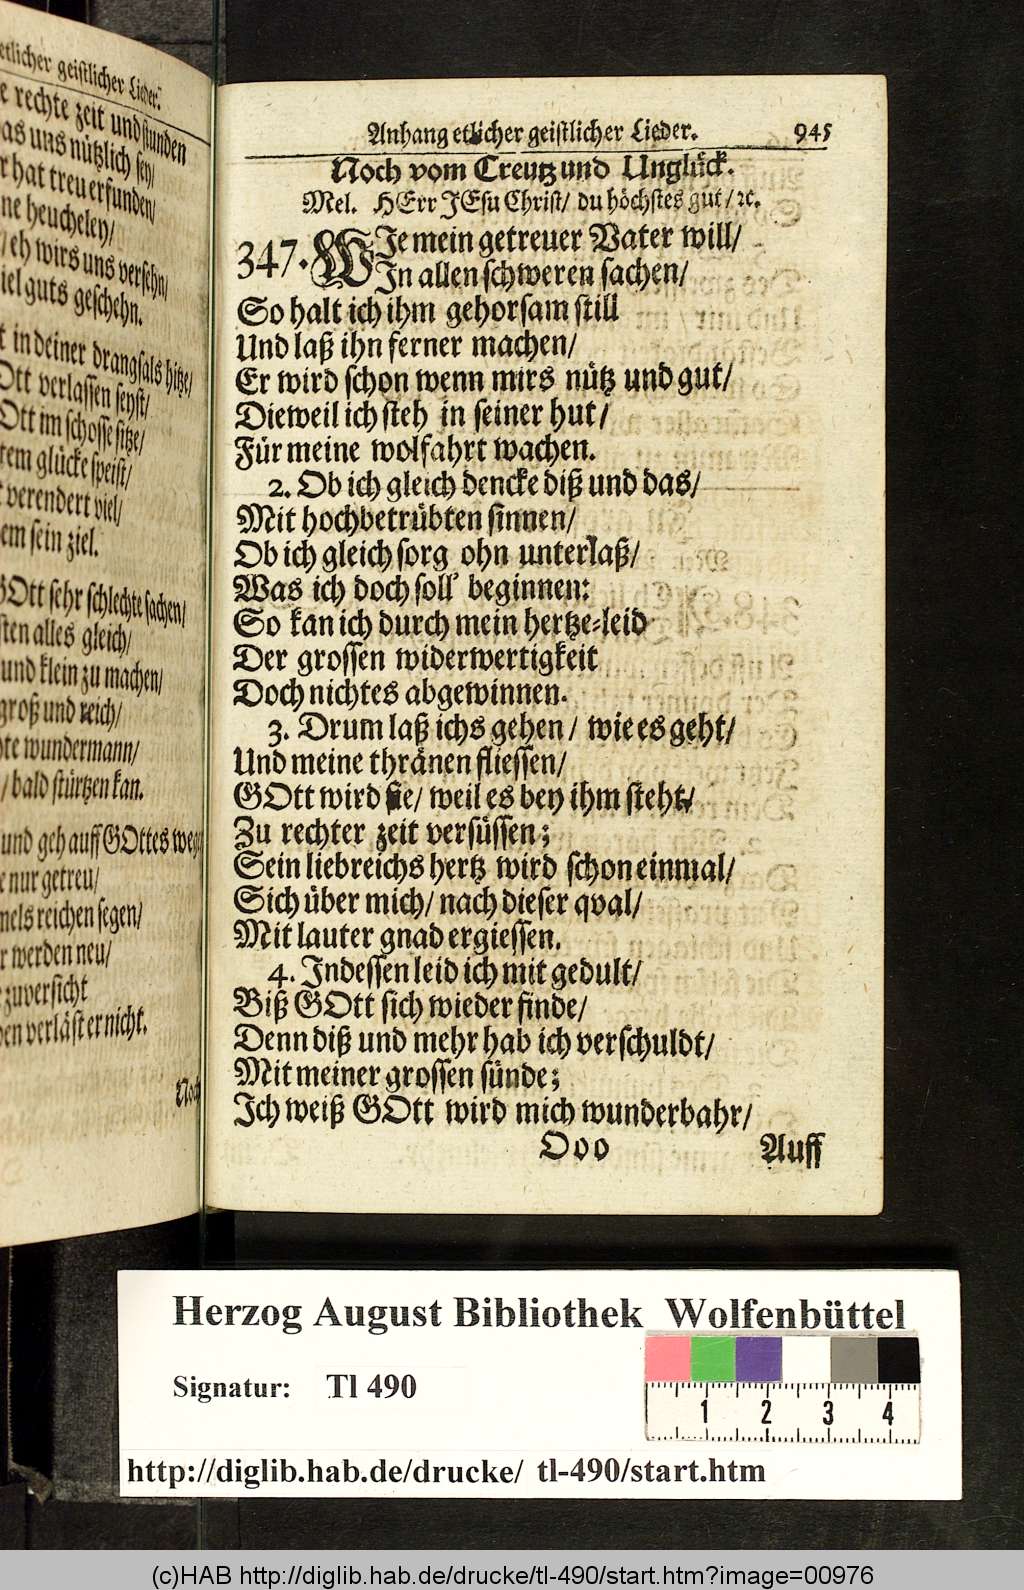 etlicher geistlicher Lieder.
rechte zeit und stunden
uns nützlich sey/
hat treu erfunden/
heucheley/
eh wirs uns versehn/
guts geschehn.
in deiner drangsals hitze/
Ott verlassen seyst/
Ott im schosse sitze/
glücke speist/
verendert viel/
sein ziel.
GOtt sehr schlechte sachen/
alles gleich/
und klein zu machen/
groß und reich/
wundermann/
/ bald stürtzen kan.
und geh auff GOttes
nur getreu/
reichen segen/
werden neu/
zuversicht
verläst er nicht.
Noch
Anhang etlicher geistlicher Lieder. 945
Noch vom Creutz und Unglück.
Mel. HErr JEsu Christ/ du höchstes gut/ ꝛc.
347. WIe mein getreuer Vater will/
In allen schweren sachen/
So halt ich ihm gehorsam still
Und laß ihn ferner machen/
Er wird schon wenn mirs nütz und gut/
Dieweil ich steh in seiner hut/
Für meine wolfahrt wachen.
2. Ob ich gleich dencke diß und das/
Mit hochbetrübten sinnen/
Ob ich gleich sorg ohn unterlaß/
Was ich doch soll beginnen:
So kan ich durch mein hertze-leid
Der grossen widerwertigkeit
Doch nichtes abgewinnen.
3. Drum laß ichs gehen/ wie es geht/
Und meine thränen fliessen/
GOtt wird sie/ weil es bey ihm steht/
Zu rechter zeit versüssen;
Sein liebreichs hertz wird schon einmal/
Sich über mich/ nach dieser qval/
Mit lauter gnad ergiessen.
4. Indessen leid ich mit gedult/
Biß GOtt sich wieder finde/
Denn diß und mehr hab ich verschuldt/
Mit meiner grossen sünde;
Ich weiß GOtt wird mich wunderbahr/
Ooo Auff
Herzog August Bibliothek Wolfenbüttel
Signatur: Tl 490
1 2 3 4
http://diglib.hab.de/drucke/ tl-490/start.htm
(c)HAB http://diglib.hab.de/drucke/tl-490/start.htm?image=00976